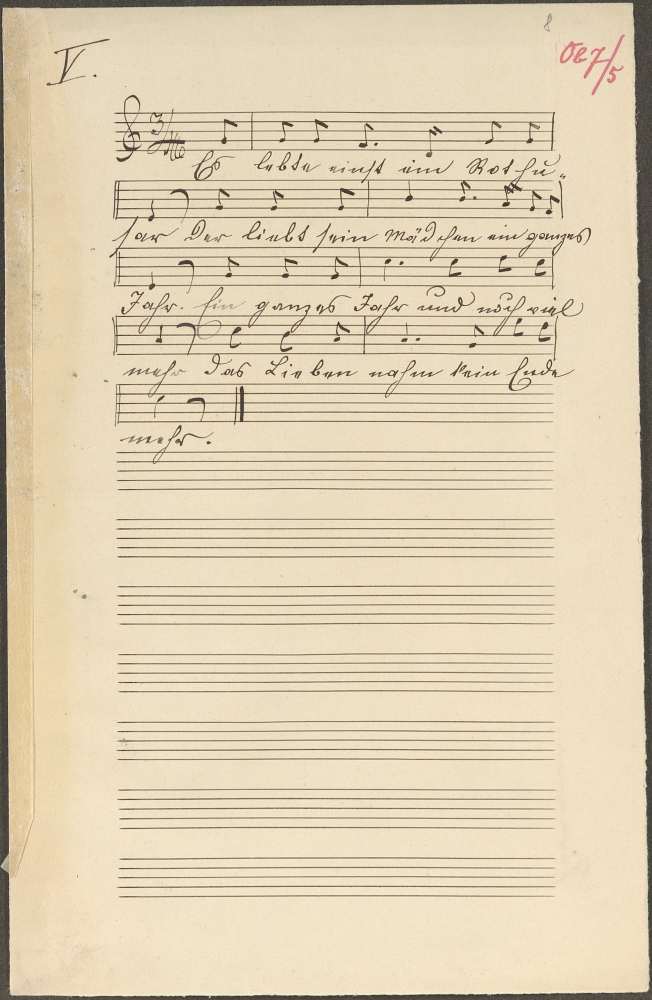 8
V.
Oe 7/5
3/16
Es lebte einst ein Rothu-
sar Der liebt sein Mädchen ein ganzes
Jahr. Ein ganzes Jahr und noch viel
mehr das Lieben nahm kein Ende
mehr.